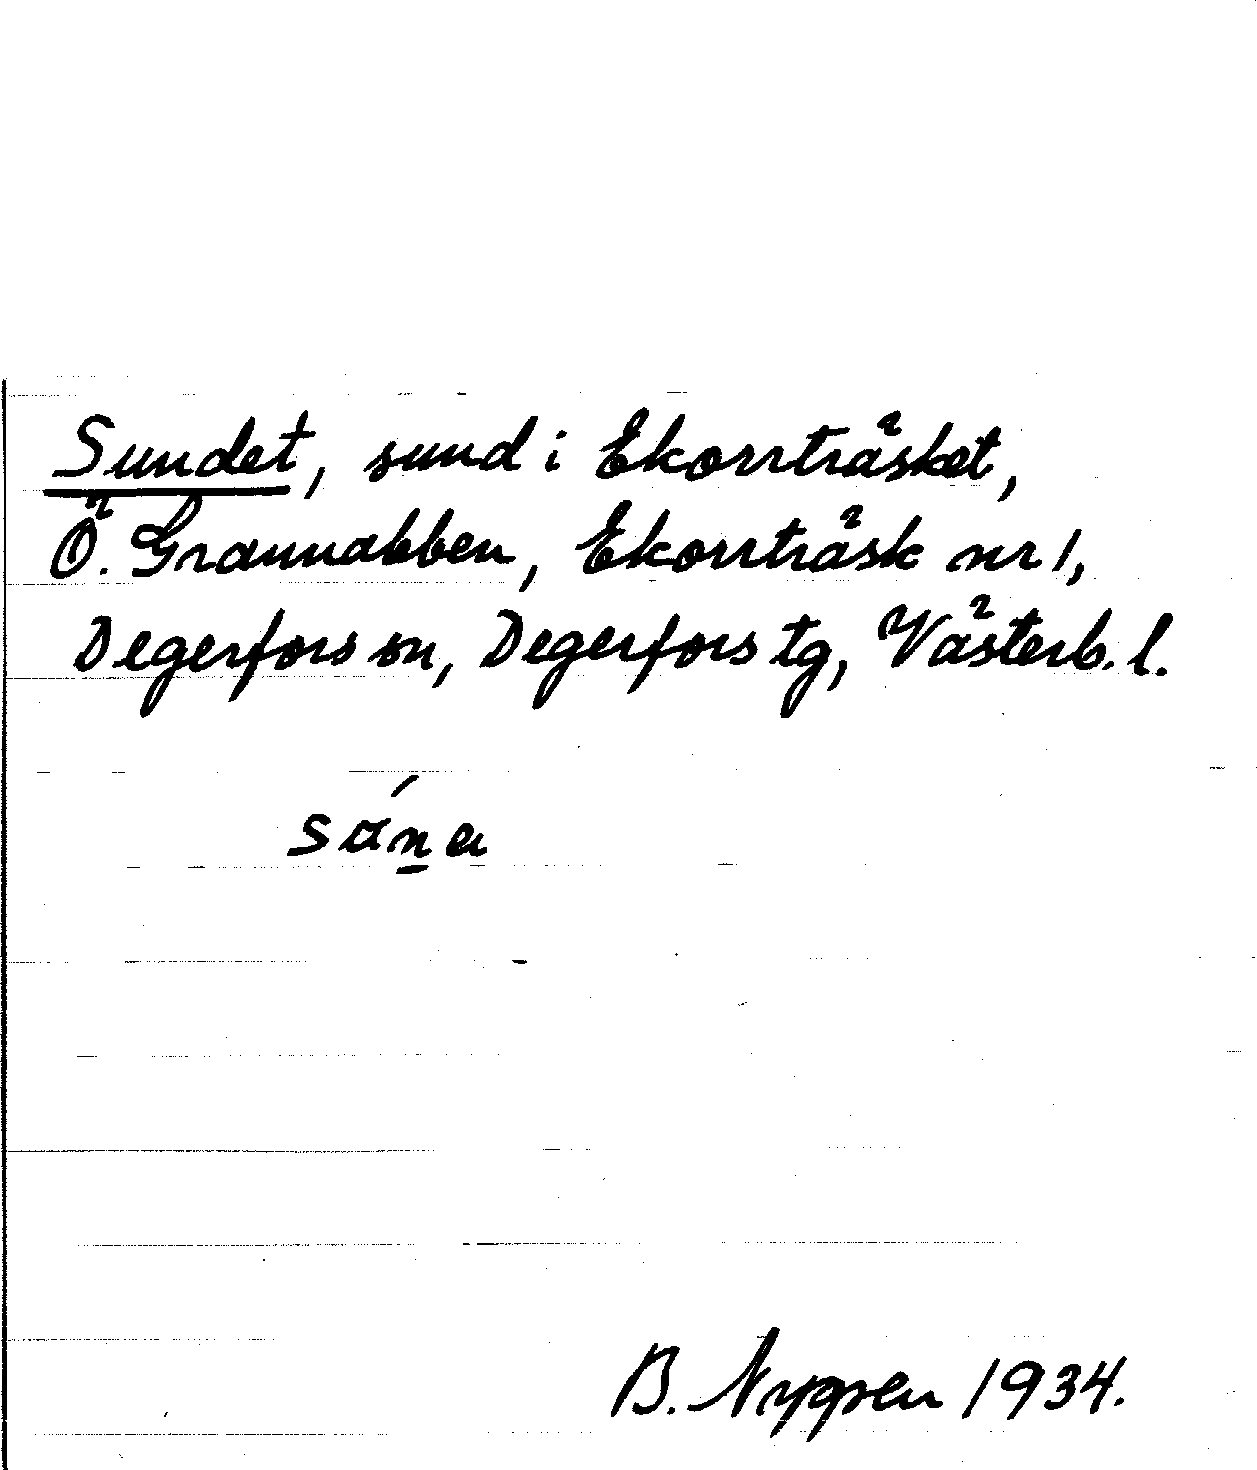 Sundet, sund i Ekorrträsket,
Ö. Grannabben, Ekorrträsk nr 1,
Degerfors sn, Degerfors tg, Västerb. l.
B. Nygren 1934.